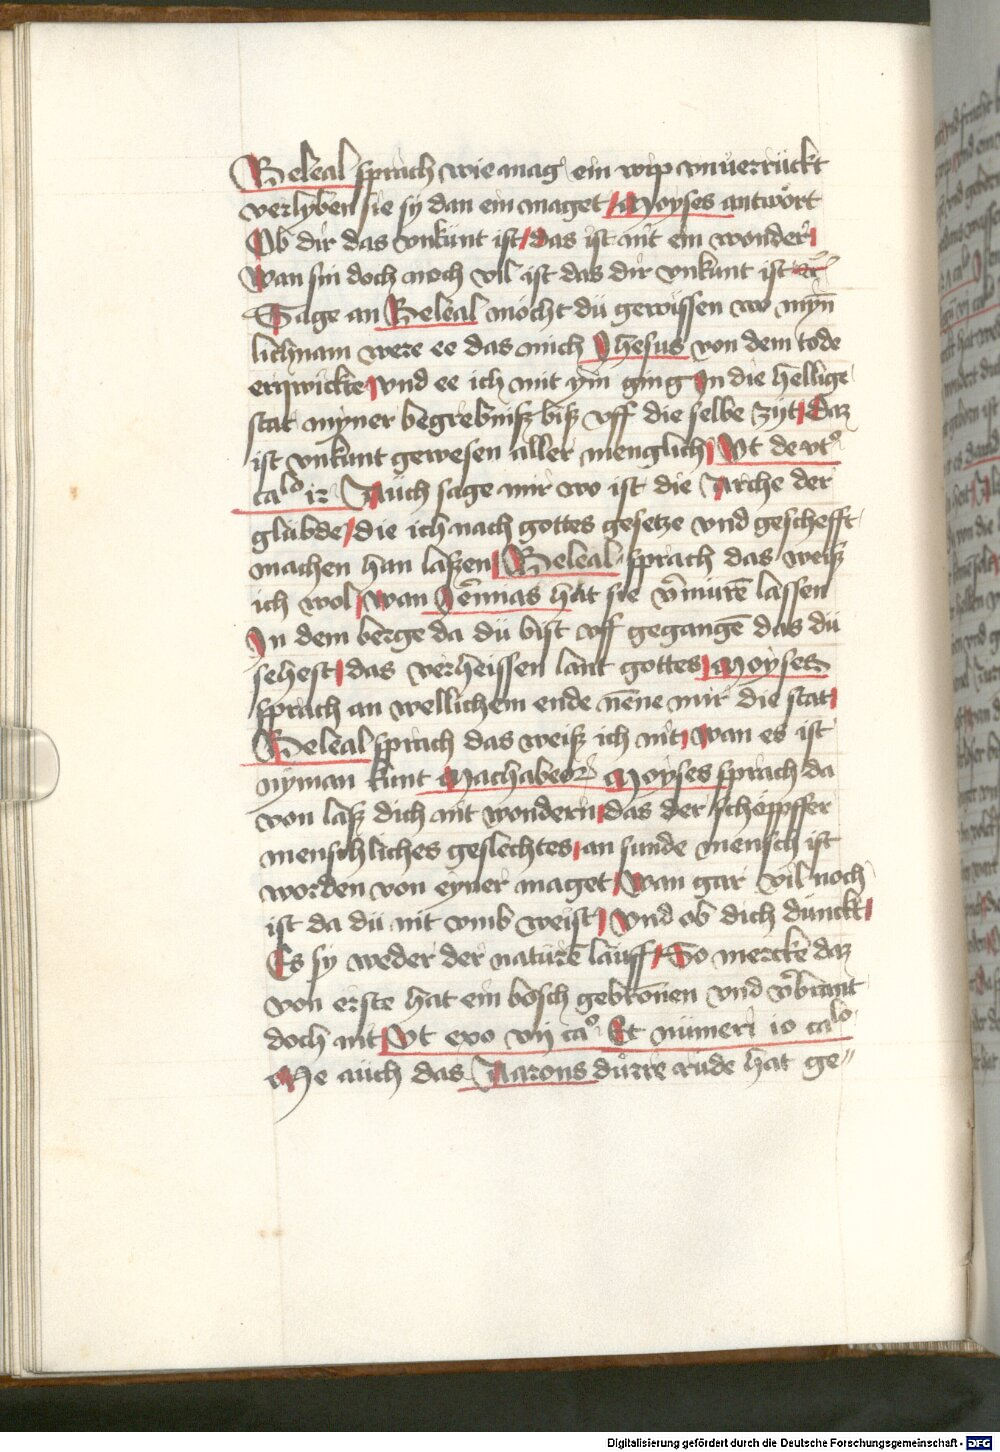 Beleal sprach wie mag ein wip vnuerrückt
verlyben sie sy dan ein maget / Moyses antwört
Ob dir das vnkunt ist / das ist nit ein wonder /
Wan sin doch noch vil ist das dir vnkunt ist
Sage an Beleal möcht dü gewissen wo myn
lichnam were ee das mich Jhesus von dem tode
erqwickte / vnd ee ich mit ym ging In die hellige
stat myner begrebnisz bisz vff die selbe zijt / Daz
ist vnkunt gewesen aller menglich / Vt deut°
calo Auch sage mir wo ist die Arche der
glübde / die ich nach gottes gesetze vnd geschefft
machen han laszen / Beleal sprach das weisz
ich wol / wan hat sie v̄müre͞ lassen
In dem berge da dü bist vff gegange͞ das dü
sehest / das verheissen lant gottes / Moyses
sprach an wellichem ende ne͞ne mir die stat /
Beleal sprach das weisz ich nit / wan es ist
nyman kunt Machabeor Moyses sprach da
von lasz dich nit wondern / das der schöppffer
menschliches geslechtes / an sunde mensch ist
worden von eyner maget / Wan gar vil noch
ist da dü nit vmb weist / vnd ob dich dünckt /
Es sy weder der nature͞ läuff / So mercke daz
von erste hat ein bosch gebronen vnd v̄brant
doch nit / Vt exo vij ca° Et nümeri io calo
Me auch das Aarons dürre rüde hat ge〃
Digitalisierung gefördert durch die Deutsche Forschungsgemeinschaft - DFG